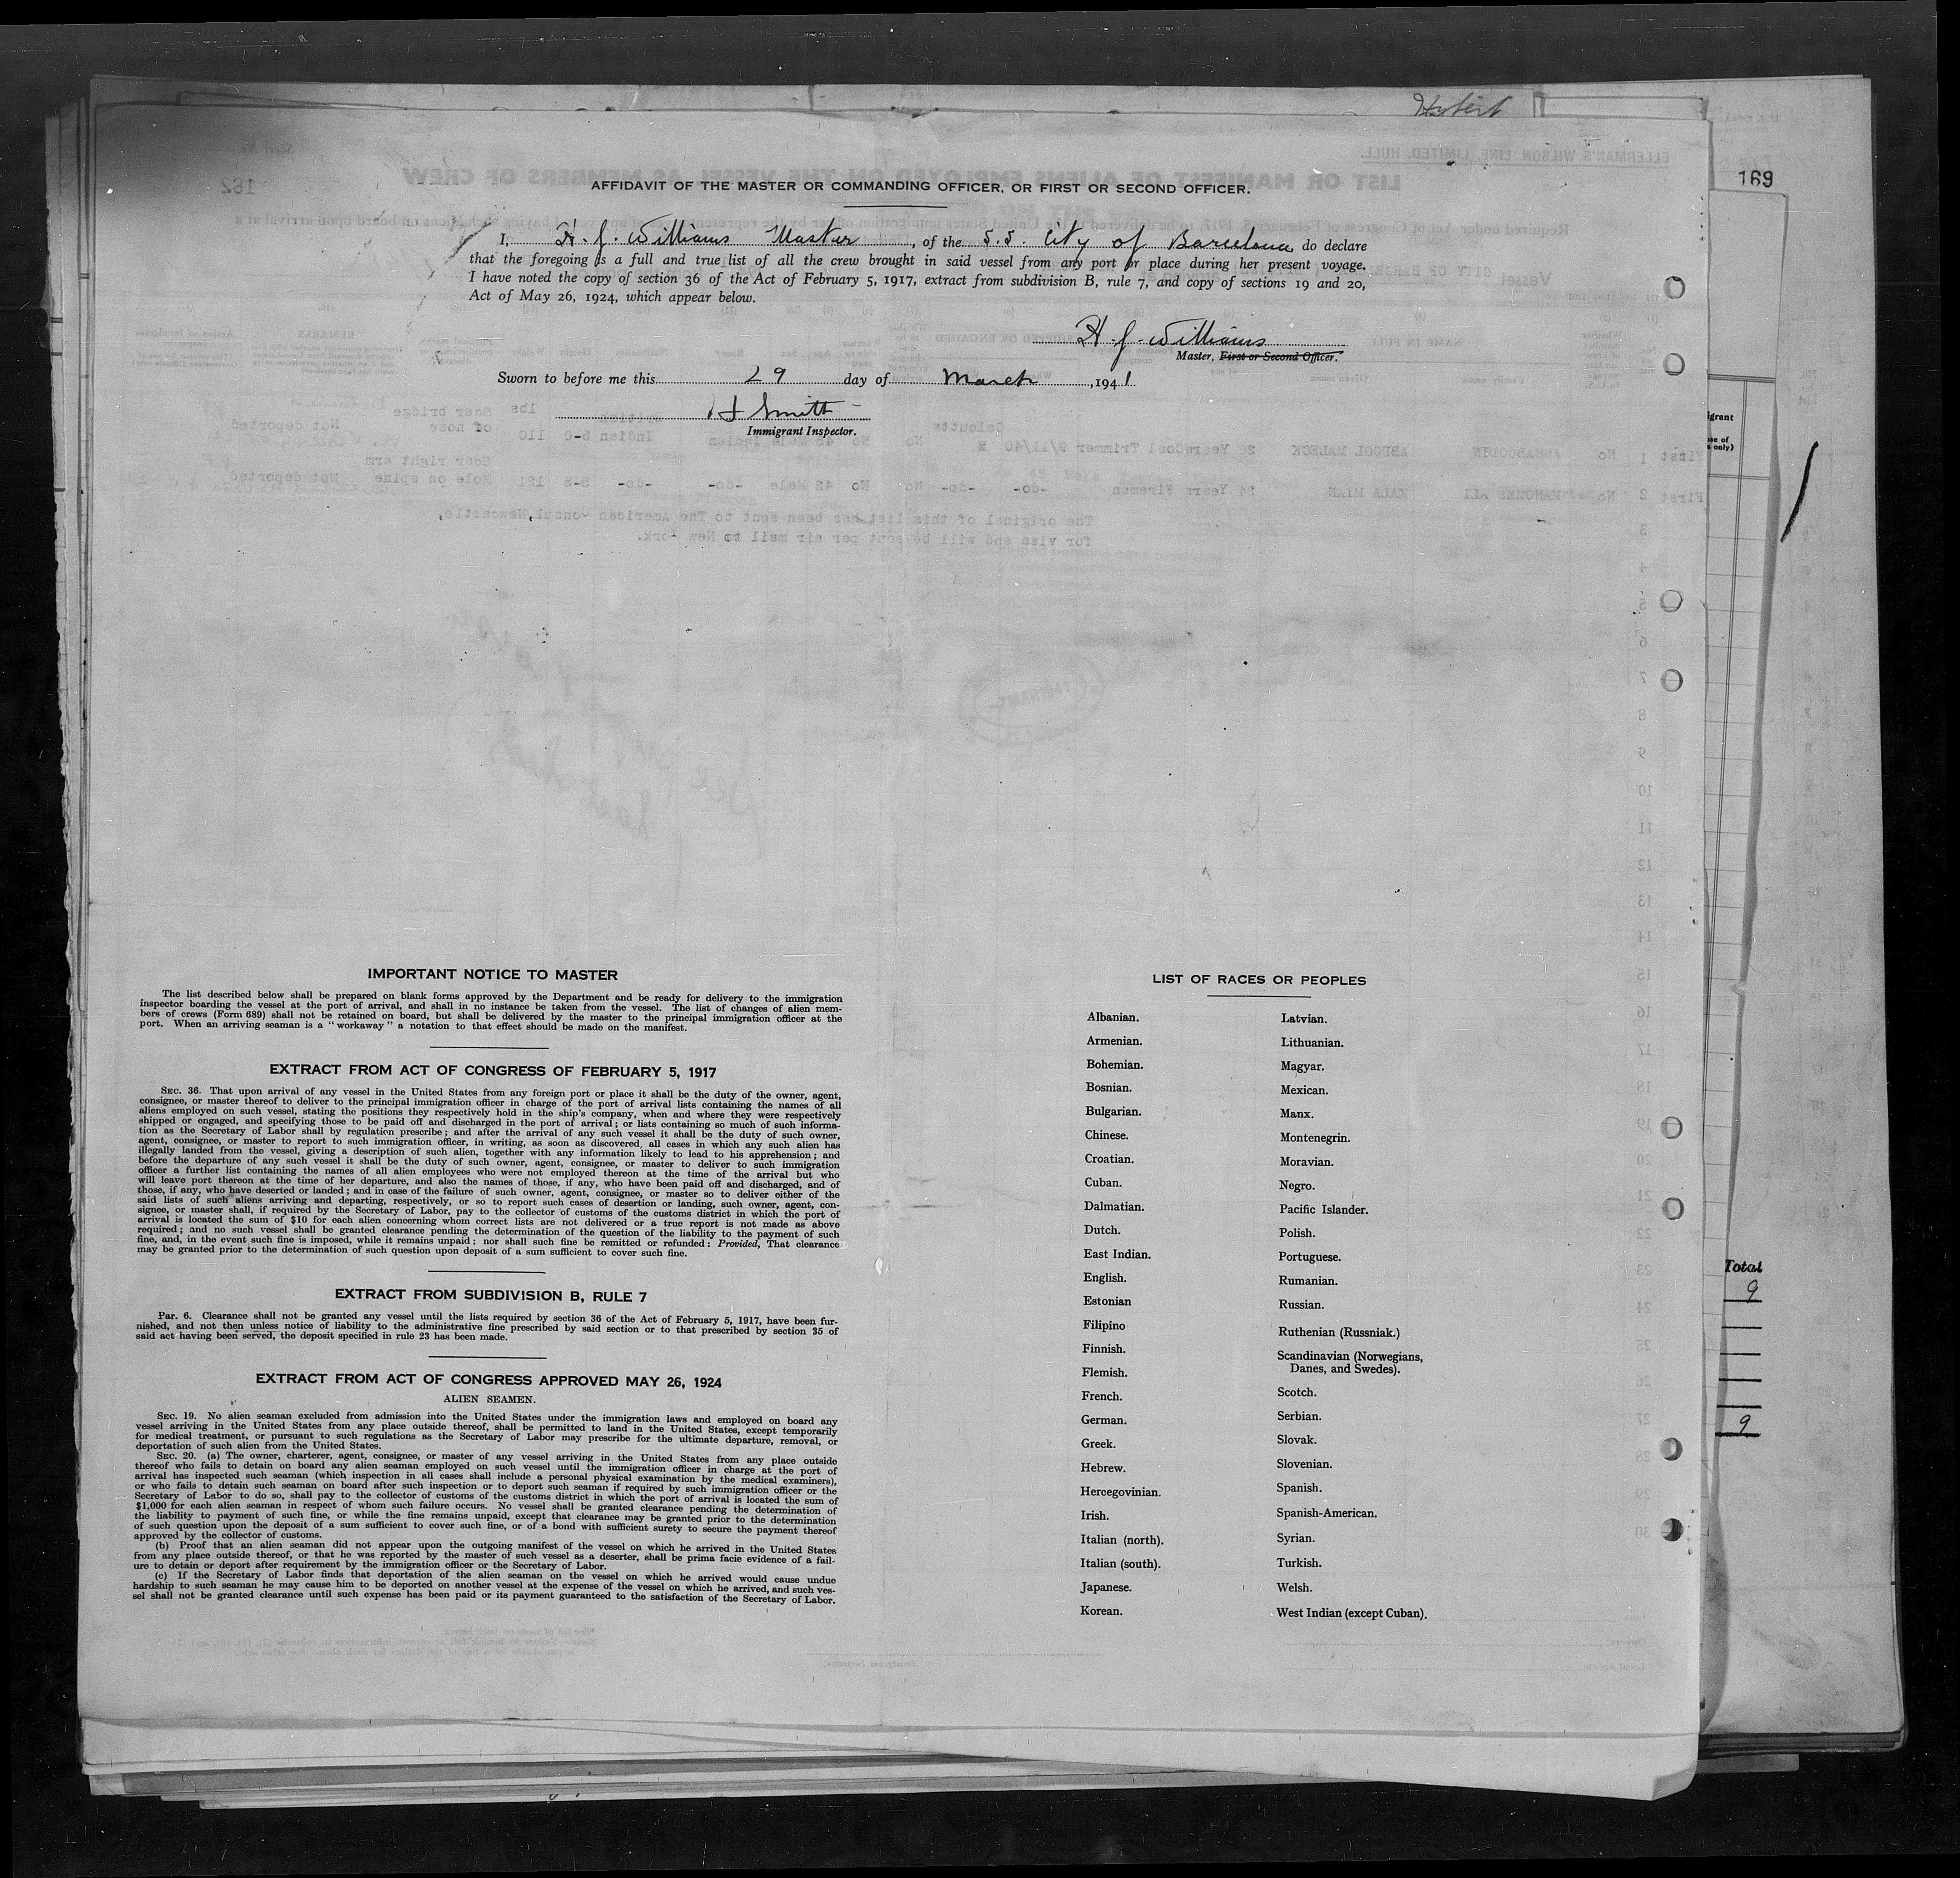 169
AFFIDAVIT OF THE MASTER OR COMMANDING OFFICER, OR FIRST OR SECOND OFFICER.
I, H. J. Williams Master, of the S.S. City of Barcelona do declare
that the foregoing is a full and true list of all the crew brought in said vessel from any port or place during her present voyage.
I have noted the copy of section 36 of the Act of February 5, 1917, extract from subdivision B, rule 7, and copy of sections 19 and 20,
Act of May 26, 1924, which appear below.
H. J. Williams
Master, First or Second Officer.
Sworn to before me this 29 day of March, 1941
Smith
Immigrant Inspector.
IMPORTANT NOTICE TO MASTER
The list described below shall be prepared on blank forms approved by the Department and be ready for delivery to the immigration
inspector boarding the vessel at the port of arrival, and shall in no instance be taken from the vessel. The list of changes of alien mem-
bers of crews (Form 689) shall not be retained on board, but shall be delivered by the master to the principal immigration officer at the
port. When an arriving seaman is a "workaway" a notation to that effect should be made on the manifest.
EXTRACT FROM ACT OF CONGRESS OF FEBRUARY 5, 1917
SEC. 36. That upon arrival of any vessel in the United States from any foreign port or place it shall be the duty of the owner, agent,
consignee, or master thereof to deliver to the principal immigration officer in charge of the port of arrival lists containing the names of all
aliens employed on such vessel, stating the positions they respectively hold in the ship's company, when and where they were respectively
shipped or engaged, and specifying those to be paid off and discharged in the port of arrival; or lists containing so much of such informa-
tion as the Secretary of Labor shall by regulation prescribe; and after the arrival of any such vessel it shall be the duty of such owner,
agent, consignee, or master to report to such immigration officer, in writing, as soon as discovered, all cases in which any such alien has
illegally landed from the vessel, giving a description of such alien, together with any information likely to lead to his apprehension; and
before the departure of any such vessel it shall be the duty of such owner, agent, consignee, or master to deliver to such immigration
officer a further list containing the names of all alien employees who were not employed thereon at the time of the arrival but who
will leave port thereon at the time of her departure, and also the names of those, if any, who have been paid off and discharged, and of
those, if any, who have deserted or landed; and in case of the failure of such owner, agent, consignee, or master so to deliver either of the
said lists of such aliens arriving and departing, respectively, or so to report such cases of desertion or landing, such owner, agent, con-
signee, or master shall, if required by the Secretary of Labor, pay to the collector of customs of the customs district in which the port of
arrival is located the sum of $10 for each alien concerning whom correct lists are not delivered or a true report is not made as above
required; and no such vessel shall be granted clearance pending the determination of the question of the liability to the payment of such
fine, and, in the event such fine is imposed, while it remains unpaid; nor shall such fine be remitted or refunded: Provided, That clearance
may be granted prior to the determination of such question upon deposit of a sum sufficient to cover such fine.
EXTRACT FROM SUBDIVISION B, RULE 7
Par. 6. Clearance shall not be granted any vessel until the lists required by section 36 of the Act of February 5, 1917, have been fur-
nished, and not then unless notice of liability to the administrative fine prescribed by said section or to that prescribed by section 35 of
said act having been served, the deposit specified in rule 23 has been made.
EXTRACT FROM ACT OF CONGRESS APPROVED MAY 26, 1924
ALIEN SEAMEN.
SEC. 19. No alien seaman excluded from admission into the United States under the immigration laws and employed on board any
vessel arriving in the United States from any place outside thereof, shall be permitted to land in the United States, except temporarily
for medical treatment, or pursuant to such regulations as the Secretary of Labor may prescribe for the ultimate departure, removal, or
deportation of such alien from the United States.
SEC. 20. (a) The owner, charterer, agent, consignee, or master of any vessel arriving in the United States from any place outside
thereof who fails to detain on board any alien seaman employed on such vessel until the immigration officer in charge at the port of
arrival has inspected such seaman (which inspection in all cases shall include a personal physical examination by the medical examiners),
or who fails to detain such seaman on board after such inspection or to deport such seaman if required by such immigration officer or the
Secretary of Labor to do so, shall pay to the collector of customs of the customs district in which the port of arrival is located the sum of
$1,000 for each alien seaman in respect of whom such failure occurs. No vessel shall be granted clearance pending the determination of
the liability to payment of such fine, or while the fine remains unpaid, except that clearance may be granted prior to the determination
of such question upon the deposit of a sum sufficient to cover such fine, or of a bond with sufficient surety to secure the payment thereof
approved by the collector of customs.
(b) Proof that an alien seaman did not appear upon the outgoing manifest of the vessel on which he arrived in the United States
from any place outside thereof, or that he was reported by the master of such vessel as a deserter, shall be prima facie evidence of a fail-
ure to detain or deport after requirement by the immigration officer or the Secretary of Labor.
(c) If the Secretary of Labor finds that deportation of the alien seaman on the vessel on which he arrived would cause undue
hardship to such seaman he may cause him to be deported on another vessel at the expense of the vessel on which he arrived, and such ves-
sel shall not be granted clearance until such expense has been paid or its payment guaranteed to the satisfaction of the Secretary of Labor.
LIST OF RACES OR PEOPLES
Albanian.
Armenian.
Bohemian.
Bosnian.
Bulgarian.
Chinese.
Croatian.
Cuban.
Dalmatian.
Dutch.
East Indian.
English.
Estonian
Filipino
Finnish.
Flemish.
French.
German.
Greek.
Hebrew.
Hercegovinian.
Irish.
Italian (north).
Italian (south).
Japanese.
Korean.
Latvian.
Lithuanian.
Magyar.
Mexican.
Manx.
Montenegrin.
Moravian.
Negro.
Pacific Islander.
Polish.
Portuguese.
Rumanian.
Russian.
Ruthenian (Russniak.)
Scandinavian (Norwegians,
Danes, and Swedes).
Scotch.
Serbian.
Slovak.
Slovenian.
Spanish.
Spanish-American.
Syrian.
Turkish.
Welsh.
West Indian (except Cuban).
Total
9
9